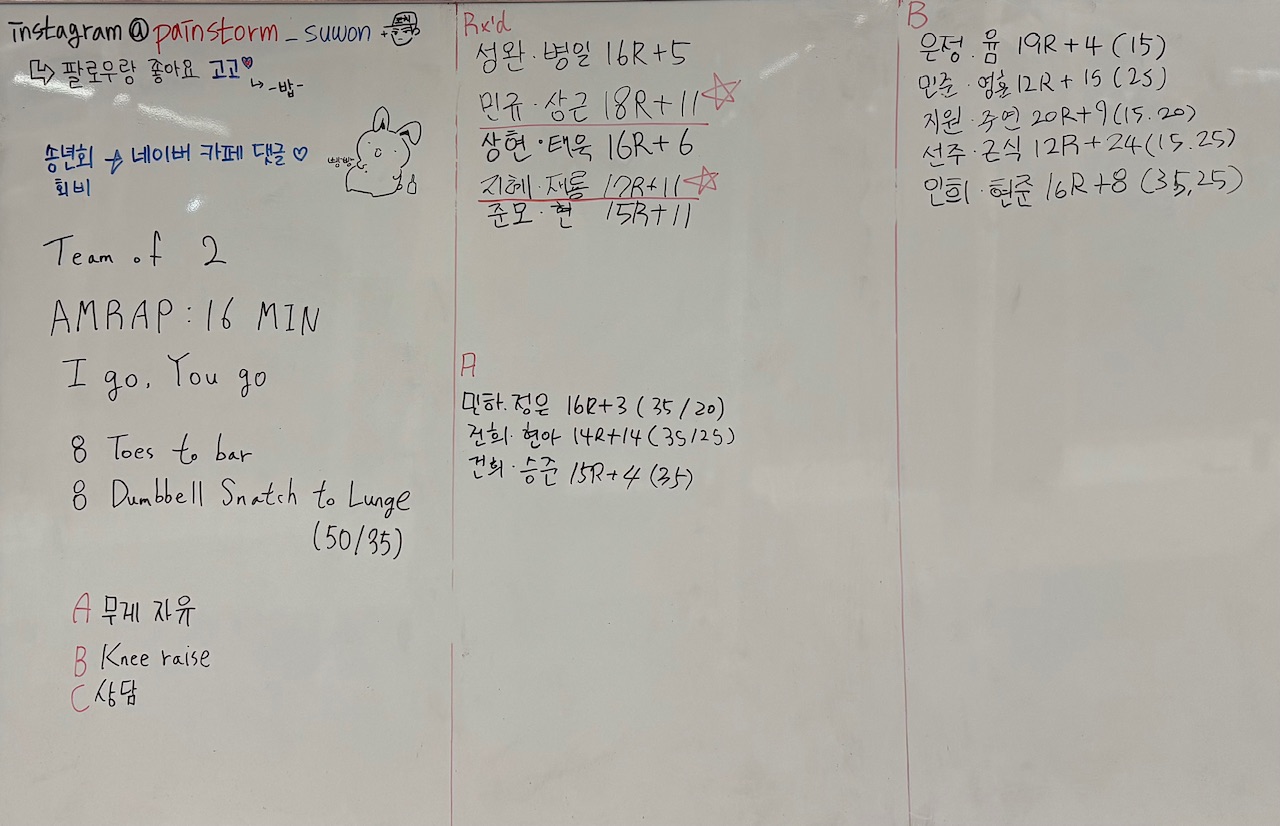 instagram@painstorm_suwon
팔로우랑 좋아요 고고
-밥-
송년회 네이버 카페 댓글
회비
빵빵
Team of 2
AMRAP : 16 MIN
I go, You go
8 Toes to bar
8 Dumbbell Snatch to Lunge
(50/35)
A 무게 자유
B Knee raise
C 상담
Rx'd
성완·병일 16R+5
민규·상근 18R+11
상현·태욱 16R+6
지혜·재룡 17R+11
준모·현 15R+11
A
민하.정은 16R+3 (35/20)
건희·현아 14R+14 (35/25)
건희·승준 15R+4 (35)
B
은정·윰 19R+4 (15)
민준·영훈 12R+15 (25)
지원·주연 20R+9 (15.20)
선주·근식 12R+24 (15.25)
인희·현준 16R+8 (35,25)